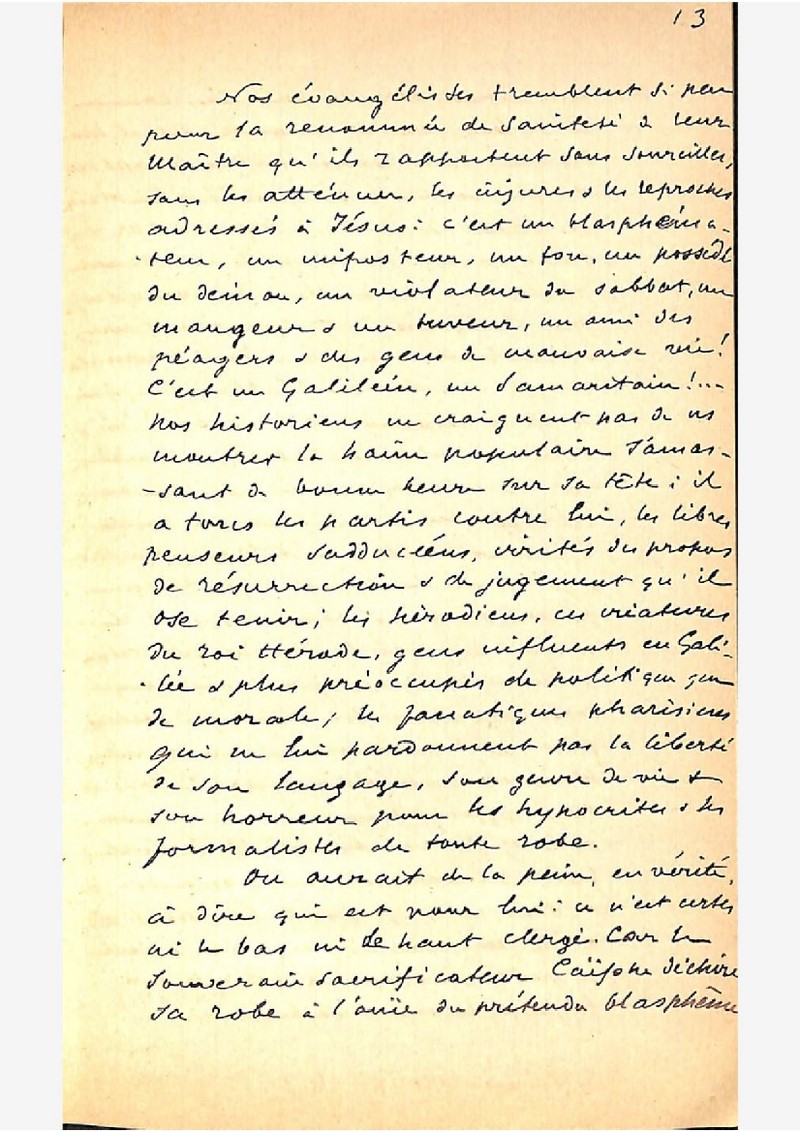 13
Nos évangélistes tremblent si peu
pour la renommée de sainteté de leur
Maître qu'ils rapportent sans sourciller,
sans les atténuer, les injures & les reproches
adressés à Jésus : c'est un blasphéma-
-teur, un imposteur, un fou, un possédé
du démon, un violateur du sabbat, un
mangeur & un buveur, un ami des
péagers & des gens de mauvaise vie !
C'est un Galiléen, un Samaritain !...
Nos historiens ne craignent pas de ns
montrer la haine populaire s'amas-
-sant de bonne heure sur sa tête ; il
a tous les partis contre lui, les libres
penseurs sadducéens, irrités des propos
de résurrection & de jugement qu'il
ose tenir ; les hérodiens, ces créatures
du roi Hérode, gens influents en Gali-
-lée & plus préoccupés de politique que
de morale ; les fanatiques pharisiens
qui ne lui pardonnent pas la liberté
de son langage, son genre de vie &
son horreur pour les hypocrites & les
formalistes de toute robe.
On aurait de la peine, en vérité,
à dire qui est pour lui : ce n'est certes
ni le bas ni le haut clergé. Car le
souverain sacrificateur Caïphe déchire
sa robe à l'ouïe du prétendu blasphème